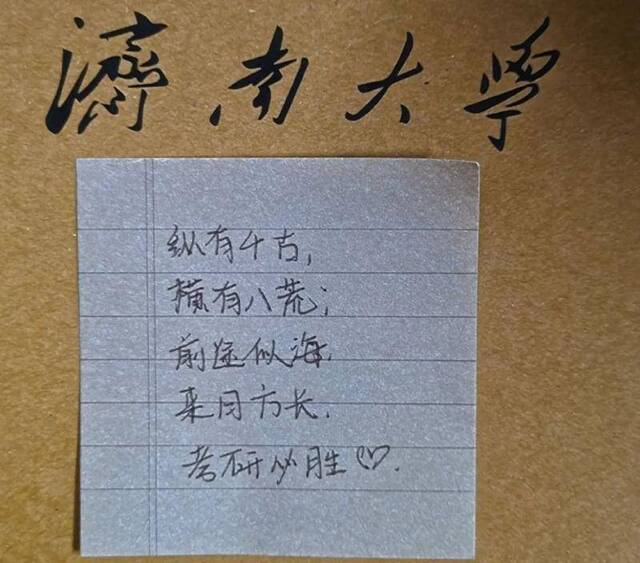 濟南大學
纵有千古,
横有八荒;
前途似海,
来日方长.
考研必胜♡.